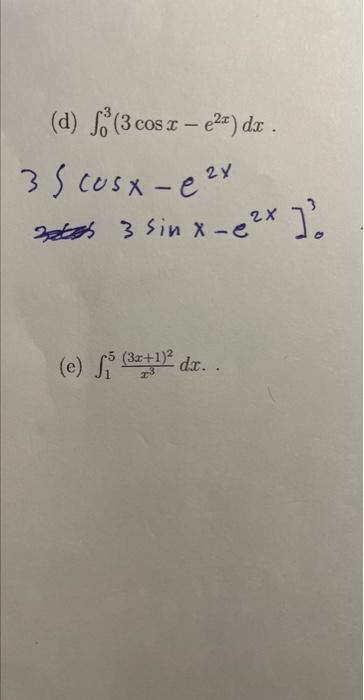 (d) ∫₀³(3 cos x − e²ˣ) dx .
3 ∫ cosx − e²ˣ
3 sin x − e²ˣ ]³₀
(e) ∫₁⁵ (3x+1)²/x³ dx. .